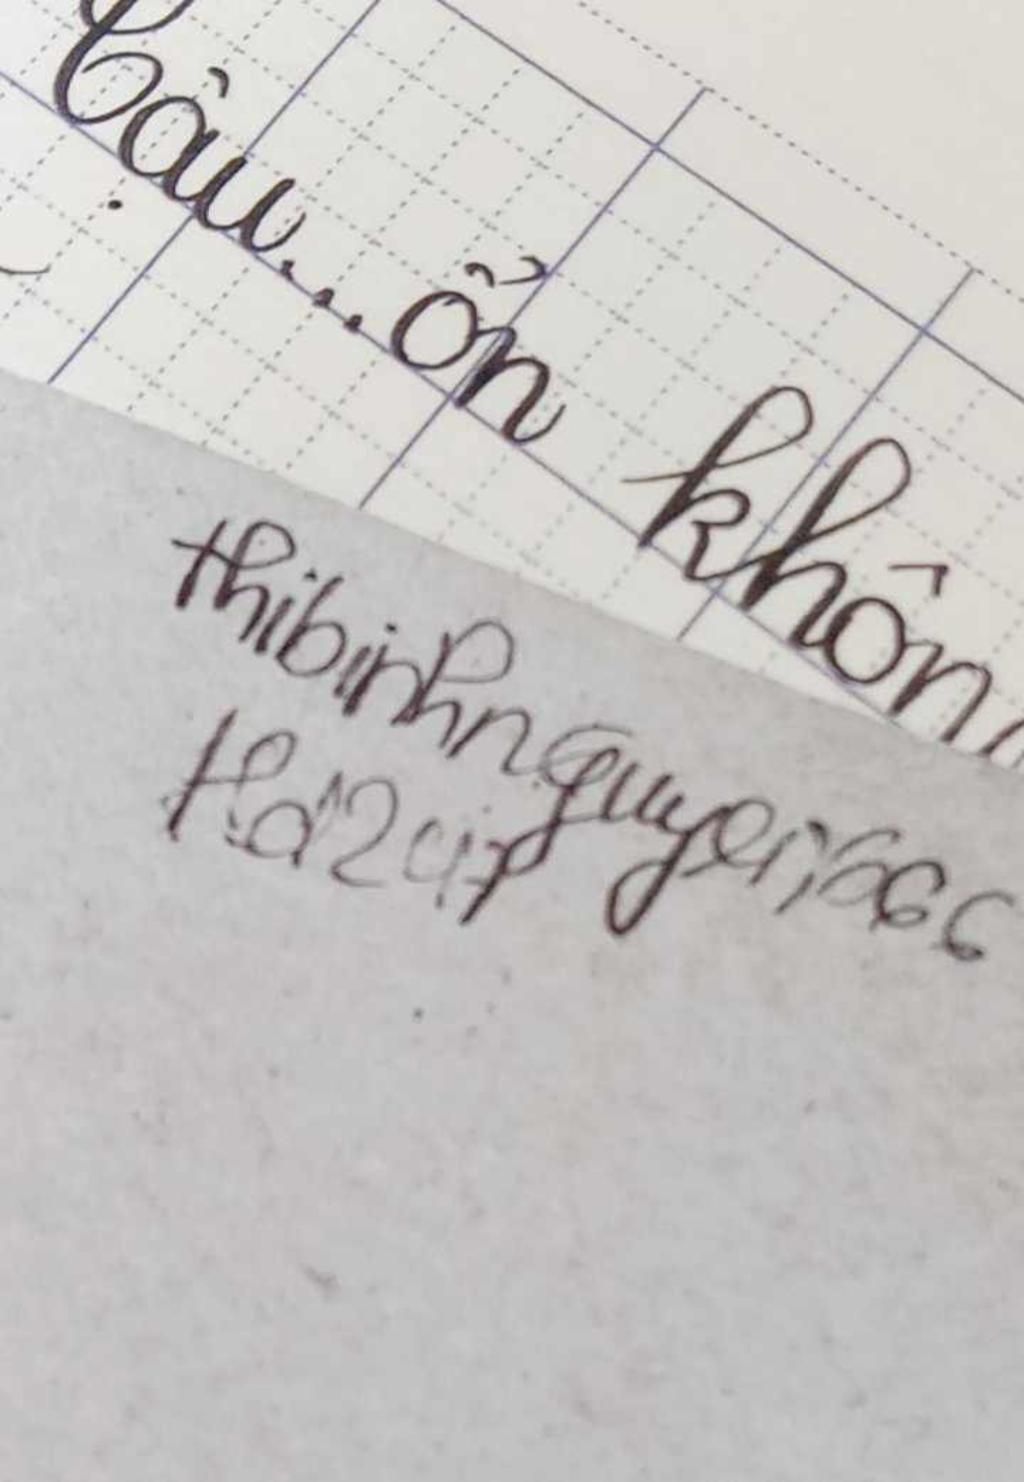 cậu...ổn không
thibinhnguyen666
Hd247